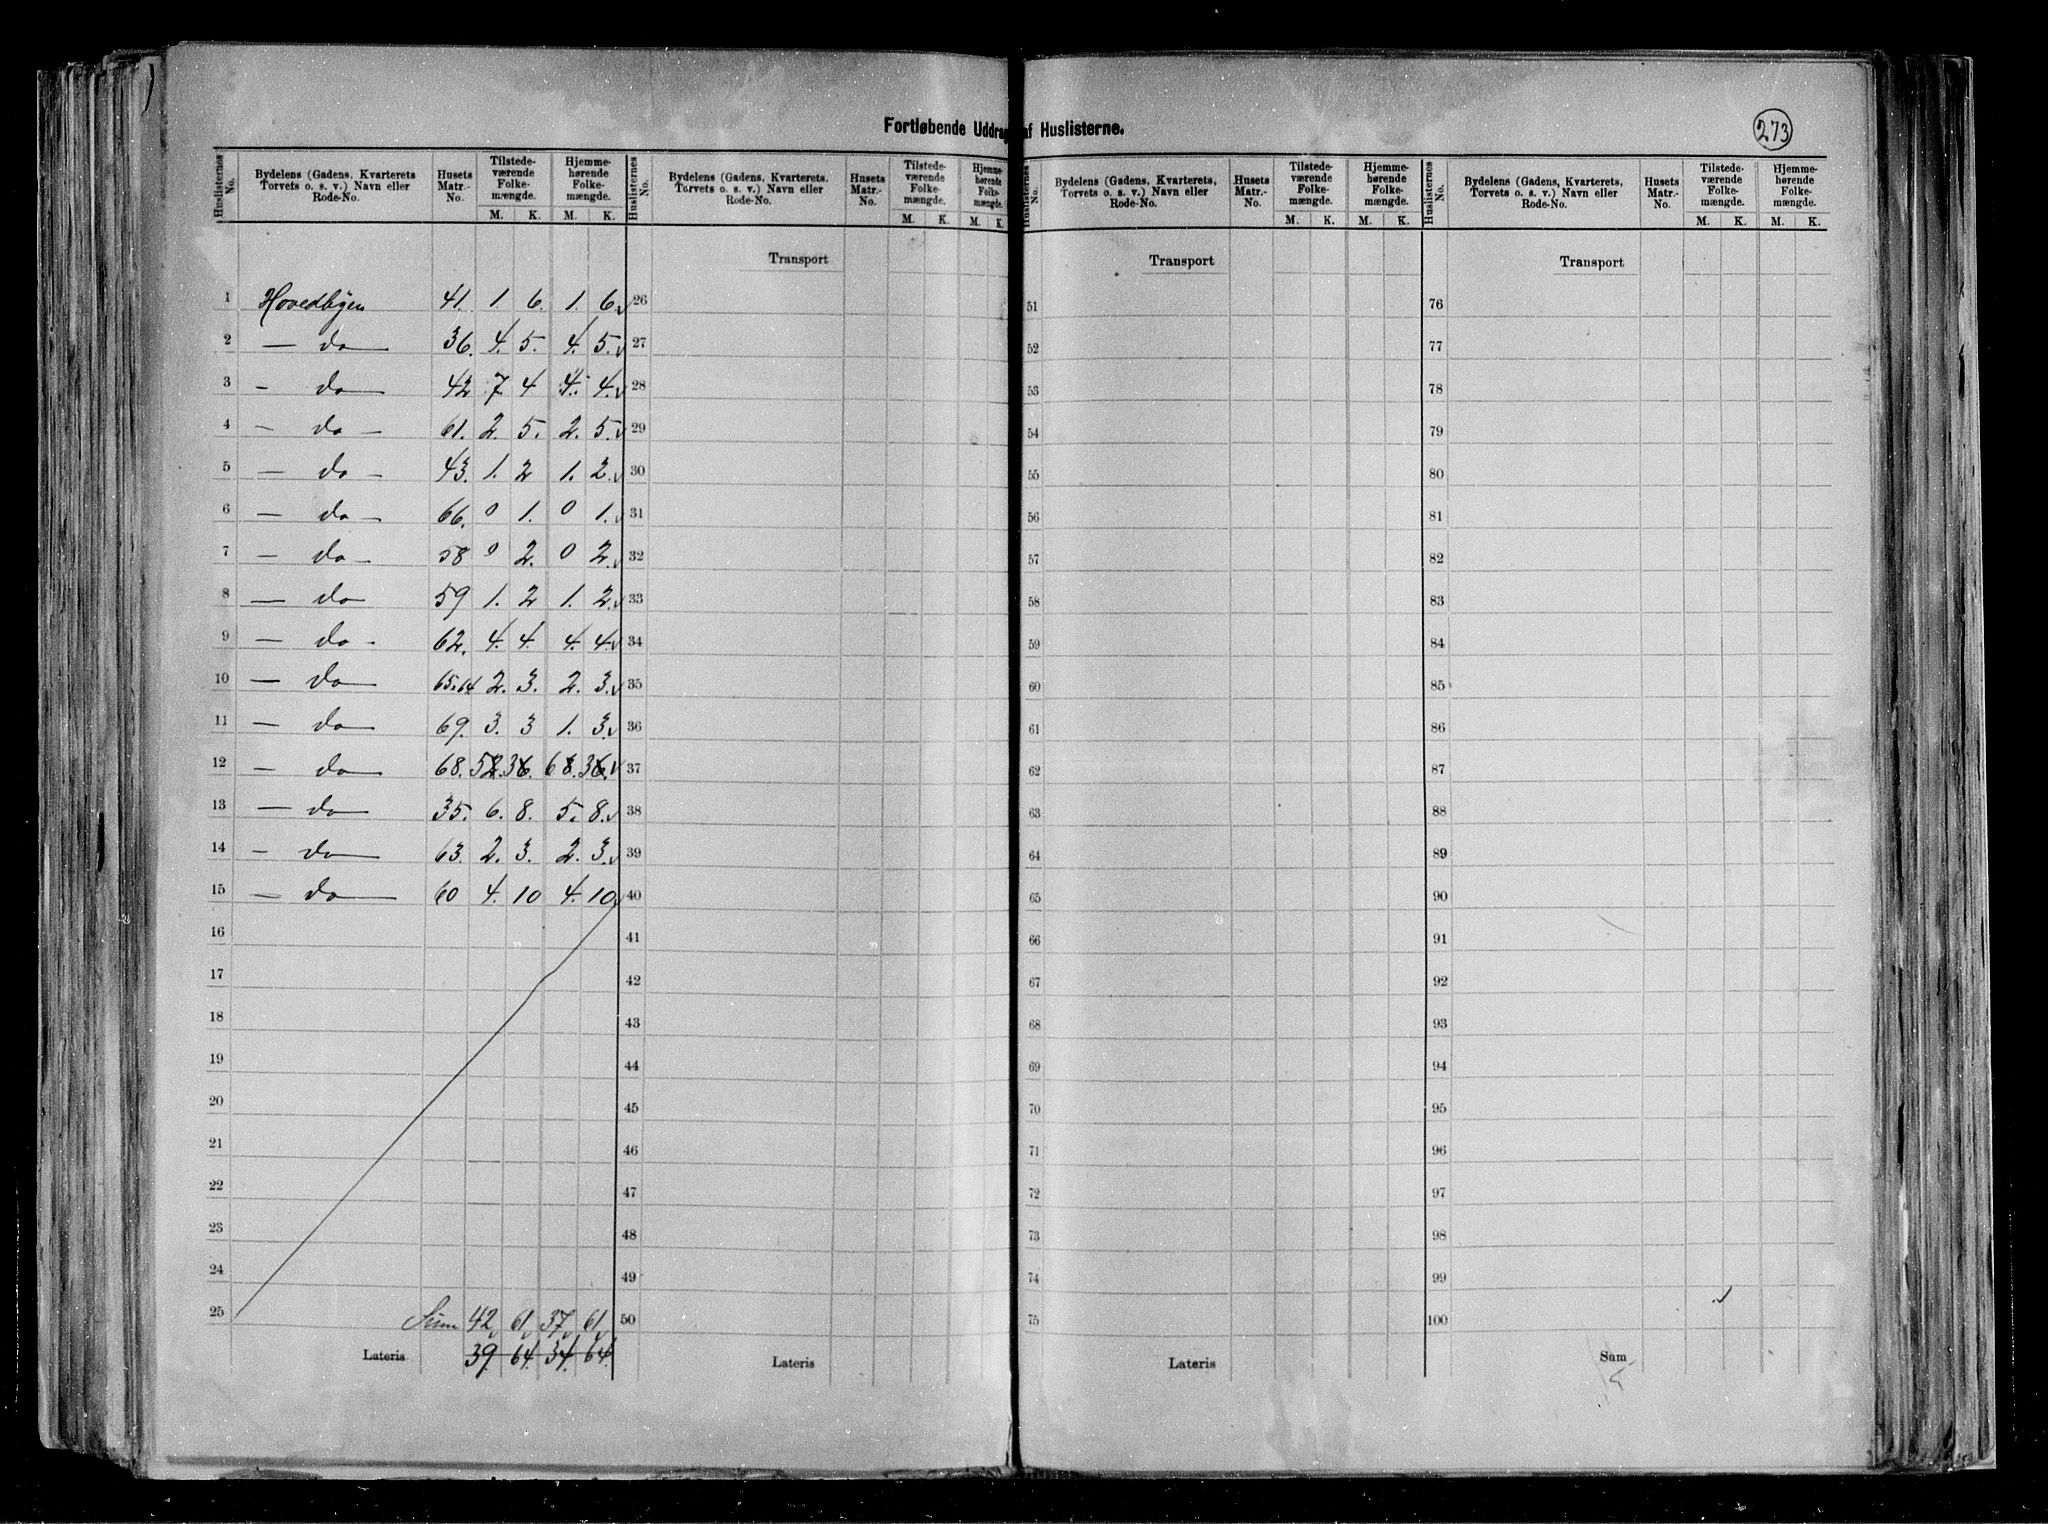 Fortløbende Uddrag af Huslisterne.
273
Huslisternes No. | Bydelens (Gadens, Kvarterets Torvets o. s. v.) Navn eller Rode-No. | Husets Matr.-No. | Tilstede-værende Folke-mængde. M. K. | Hjemme-hørende Folke-mængde. M. K.
1 Hovedbyen 41. 1. 6. 1. 6.
2 — do — 36. 4. 5. 4. 5.
3 — do — 42 7. 4 4. 4.
4 — do — 61. 2. 5. 2. 5.
5 — do — 43. 1. 2 1. 2.
6 — do — 66. 0 1. 0 1.
7 — do — 58 0 2. 0 2.
8 — do 59 1. 2 1. 2.
9 — do — 62. 4. 4. 4. 4.
10 — do — 65.64 2. 3. 2. 3.
11 — do — 69. 3. 3 1. 3.
12 — do — 68.
13 — do — 35. 6. 8. 5. 8.
14 — do — 63. 2. 3. 2. 3.
15 — do — 60 4. 10 4. 10
16
17
18
19
20
21
22
23
24
25 Sum 42 61 37 61
Lateris 39. 64. 34. 64.
Huslisternes No. | Bydelens (Gadens, Kvarterets, Torvets o. s. v.) Navn eller Rode-No. | Husets Matr.-No. | Tilstede-værende Folke-mængde. M. K. | Hjemme-hørende Folke-mængde. M. K.
Transport
26
27
28
29
30
31
32
33
34
35
36
37
38
39
40
41
42
43
44
45
46
47
48
49
50
Lateris
Huslisternes No. | Bydelens (Gadens, Kvarterets, Torvets o. s. v.) Navn eller Rode-No. | Husets Matr.-No. | Tilstede-værende Folke-mængde. M. K. | Hjemme-hørende Folke-mængde. M. K.
Transport
51
52
53
54
55
56
57
58
59
60
61
62
63
64
65
66
67
68
69
70
71
72
73
74
75
Lateris
Huslisternes No. | Bydelens (Gadens, Kvarterets, Torvets o. s. v.) Navn eller Rode-No. | Husets Matr.-No. | Tilstede-værende Folke-mængde. M. K. | Hjemme-hørende Folke-mængde. M. K.
Transport
76
77
78
79
80
81
82
83
84
85
86
87
88
89
90
91
92
93
94
95
96
97
98
99
100
Sum